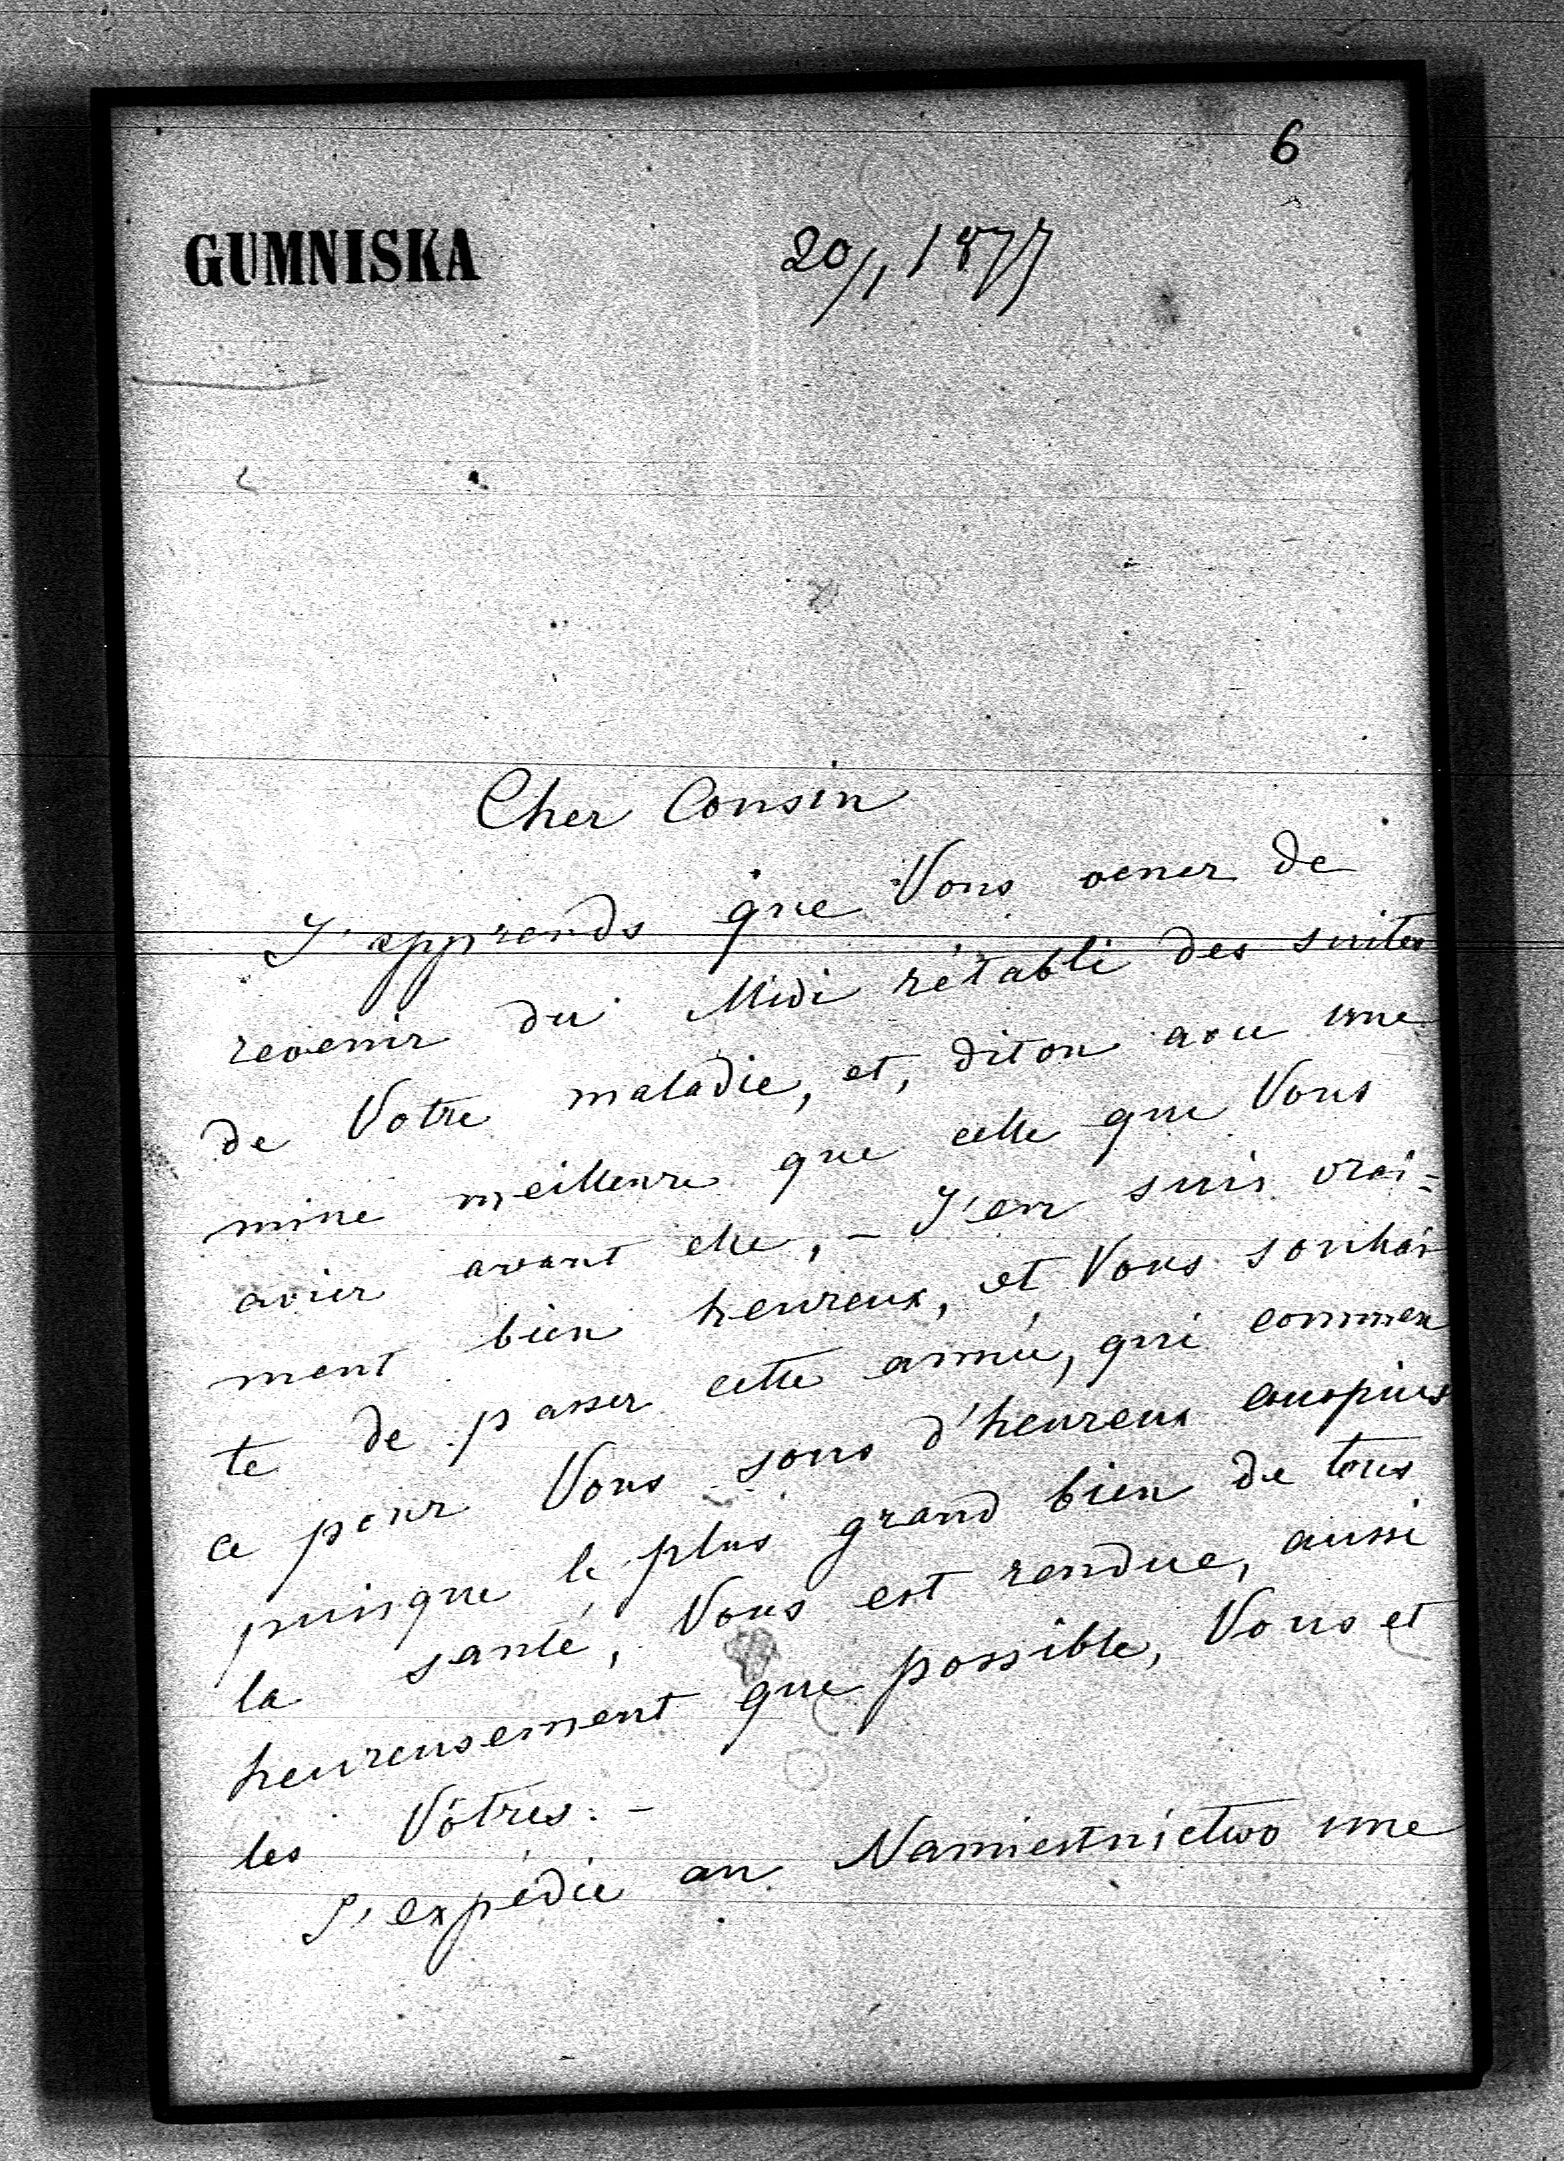 6
GUMNISKA 20/1 1877
Cher Cousin
J'apprends que Vous venez de
revenir du Midi rétabli des suites
de Votre maladie, et, dit on avec une
mine meilleure que celle que Vous
aviez avant elle, - J'en suis vrai-
ment bien heureux, et Vous souhai
te de passer cette année, qui commen
ce pour Vous sous d'heureux auspices
puisque le plus grand bien de tous
la santé, Vous est rendue, aussi
heureusement que possible, Vous et
les Vôtres. -
J'expédie au Namiestnictwo une